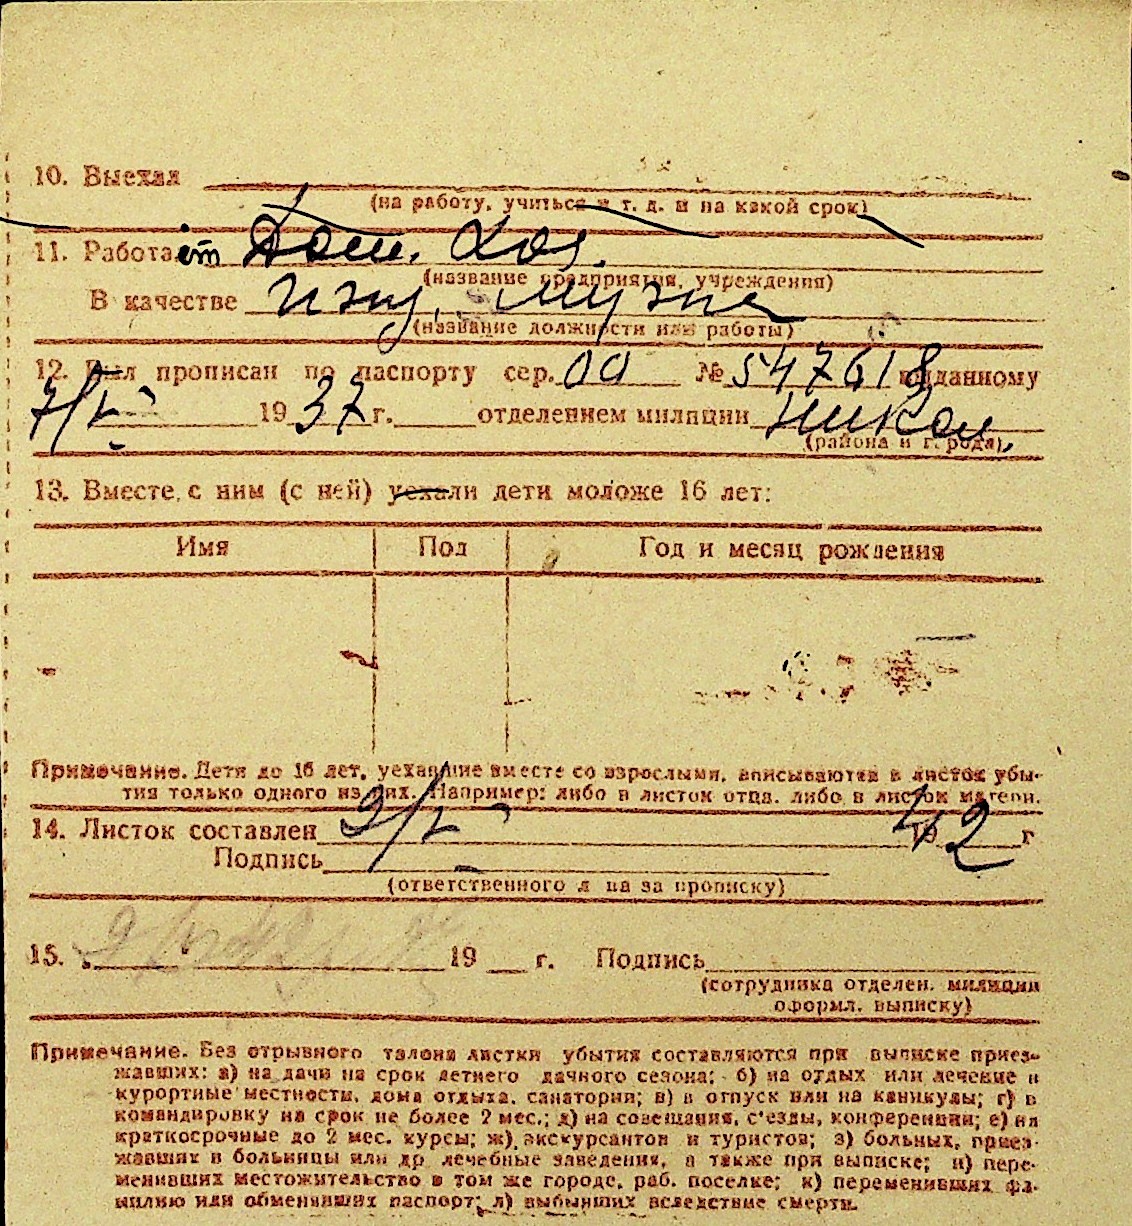 10. Выехал
(на работу, учиться и т. д. и на какой срок)
11. Работает Дом. Хоз.
(название предприятия, учреждения)
В качестве ижд. мужа
(название должности или работы)
12. Был прописан по паспорту сер. № 547618 выданному
7/V 1937 г. отделением милиции
(района и города)
13. Вместе с ним (с ней) уехали дети моложе 16 лет:
Имя Пол Год и месяц рождения
Примечание. Дети до 16 лет, уехавшие вместе со взрослыми, вписываются в листок убы-
тия только одного из них. Например: либо в листок отца, либо в листок матери.
14. Листок составлен 9/V 1942 г
Подпись
(ответственного л ца за прописку)
15. 19 г. Подпись
(сотрудника отделен. милиции
оформл. выписку)
Примечание. Без отрывного талона листки убытия составляются при выписке приез-
жавших: а) на дачи на срок летнего дачного сезона; б) на отдых или лечение в
курортные местности, дома отдыха, санатории; в) в отпуск или на каникулы; г) в
командировку на срок не более 2 мес.; д) на совещания, с'езды, конференции; е) на
краткосрочные до 2 мес. курсы; ж) экскурсантов и туристов; з) больных, приез-
жавших в больницы или др лечебные заведения, а также при выписке; и) пере-
менивших местожительство в том же городе, раб. поселке; к) переменивших фа-
милию или обменявших паспорт; л) выбывших вследствие смерти.